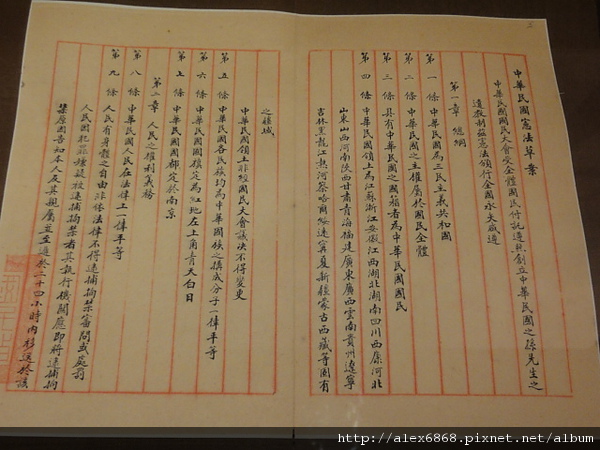 中華民國憲法草案
中華民國國民大會受全體國民付託遵照創立中華民國之孫先生之
遺教制茲憲法頒行全國永矢咸遵
第一章 總綱
第一條 中華民國為三民主義共和國
第二條 中華民國之主權屬於國民全體
第三條 具有中華民國之國籍者為中華民國國民
第四條 中華民國領土為江蘇浙江安徽江西湖北湖南四川西康河北
山東山西河南陝西甘肅青海福建廣東廣西雲南貴州遼寧
吉林黑龍江熱河察哈爾綏遠寧夏新疆蒙古西藏等固有
之疆域
中華民國領土非經國民大會議決不得變更
第五條 中華民國各民族均為中華國族之構成分子一律平等
第六條 中華民國國旗定為紅地左上角青天白日
第七條 中華民國國都定於南京
第二章 人民之權利義務
第八條 中華民國人民在法律上一律平等
第九條 人民有身體之自由非依法律不得逮捕拘禁審問或處罰
人民因犯罪嫌疑被逮捕拘禁者其執行機關應即將逮捕拘
禁原因告知本人及其親屬並至遲於二十四小時內移送於該
http://alex6868.pixnet.net/album